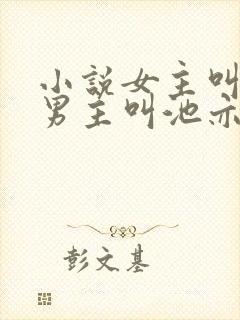 小説女主叫
男主叫池亦
彭文基